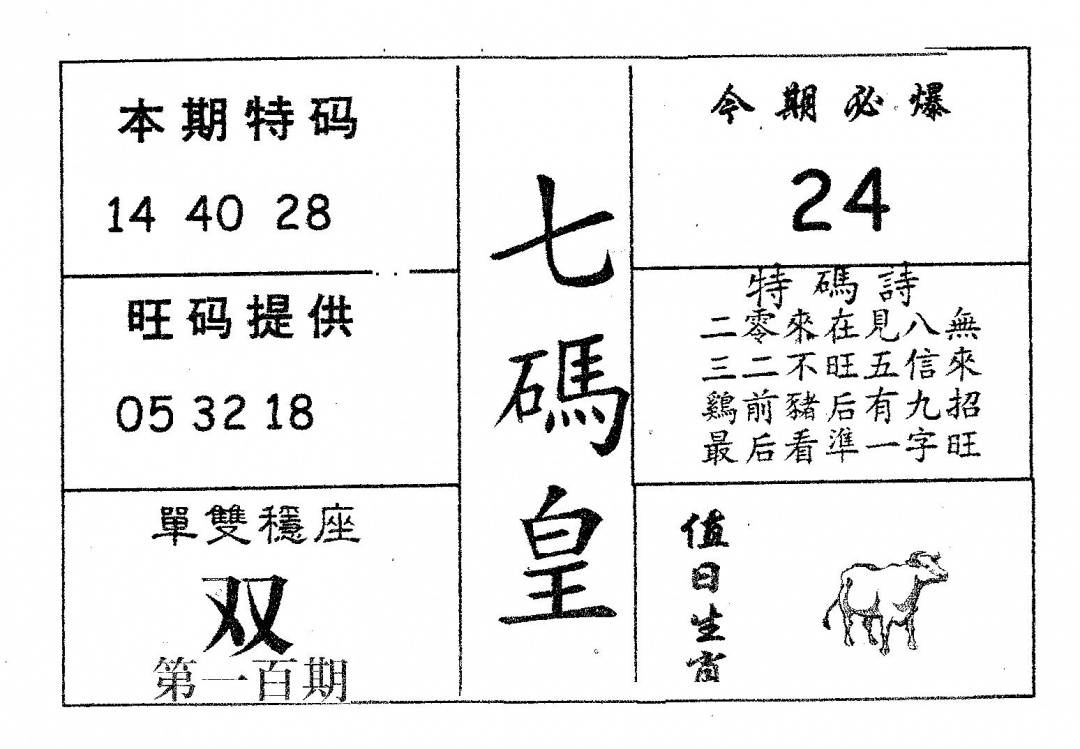 本期特码
14 40 28
旺码提供
05 32 18
單雙穩座
双
第一百期
七碼皇
今期必爆
24
特碼詩
二零來在見八無
三二不旺五信來
鷄前豬后有九招
最后看準一字旺
值日生肖